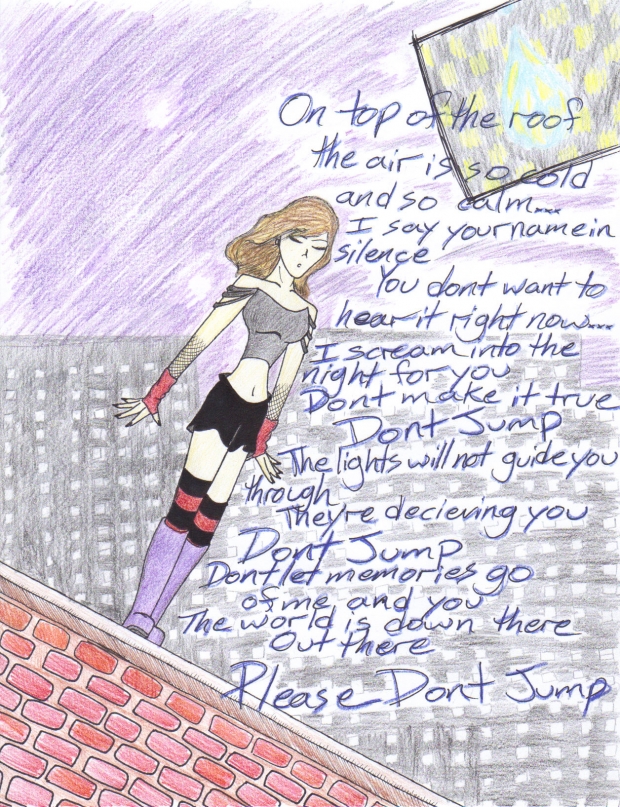 On top of the roof
the air is so cold
and so calm...
I say your name in
silence
You dont want to
hear it right now...
I scream into the
night for you
Dont make it true
Dont Jump
The lights will not guide you
through
They're decieving you
Dont Jump
Dont let memories go
of me and you
The world is down there
Out there
Please Dont Jump